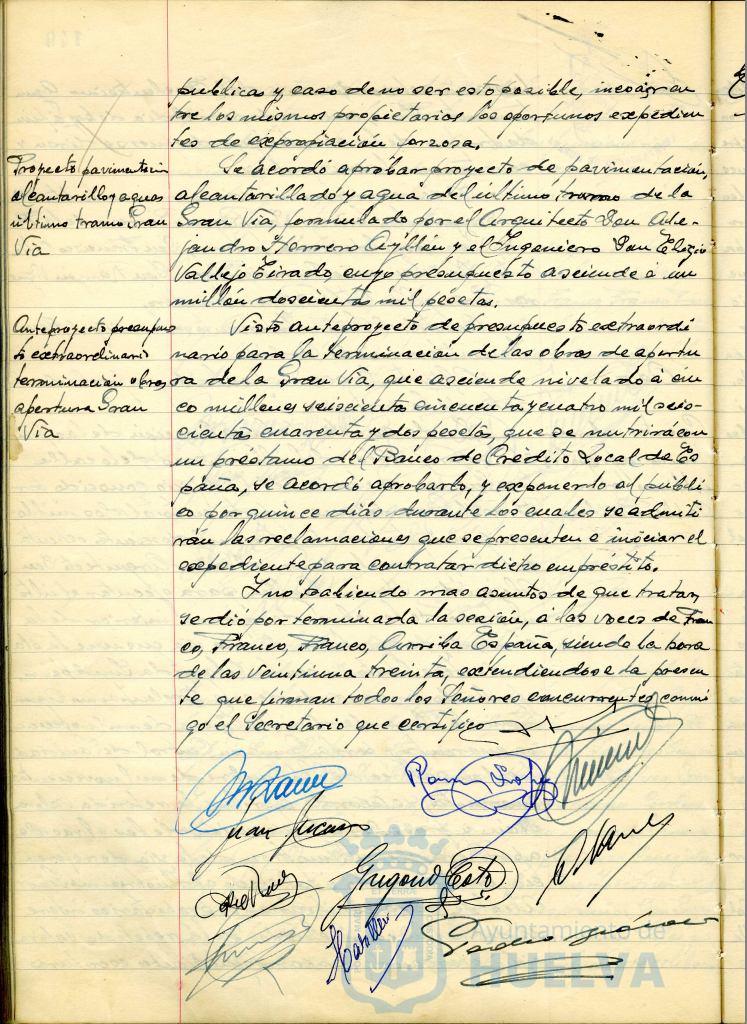 publicas y caso de no ser esto posible, incoar en
tre los mismos propietarios los oportunos expedien
tes de expropiación forzosa.
Proyecto pavimentación
alcantarillo y aguas
ultimo tramo Gran
Via
Se acordó aprobar proyecto de pavimentación,
alcantarillado y agua del último tramo de la
Gran Via, formulado por el Arquitecto Don Ale-
jandro Herrero Ayllón y el Ingeniero Don Eloy
Vallejo Eirado, cuyo presupuesto asciende á un
millón doscientas mil pesetas.
Anteproyecto presupues
to extraordinario
terminación obras
apertura Gran
Via
Visto anteproyecto de presupuesto extraordi
nario para la terminación de las obras de apertu
ra de la Gran Via, que asciende nivelado á cin
co millones seiscientas cincuenta y cuatro mil seis-
cientas cuarenta y dos pesetas, que se nutrirá con
un préstamo del Banco de Crédito Local de Es
paña, se acordó aprobarlo, y exponerlo al públi
co por quince dias durante los cuales se admiti
rán las reclamaciones que se presenten e iniciar el
expediente para contratar dicho empréstito.
Y no habiendo mas asuntos de que tratar,
se dió por terminada la sesión, á las voces de Fran
co, Franco, Franco, Arriba España, siendo la hora
de las veintiuna treinta, extendiendose la presen
te que firman todos los Señores concurrentes, conmi
go el Secretario que certifico
Gregorio Soto
Ayuntamiento de
HUELVA